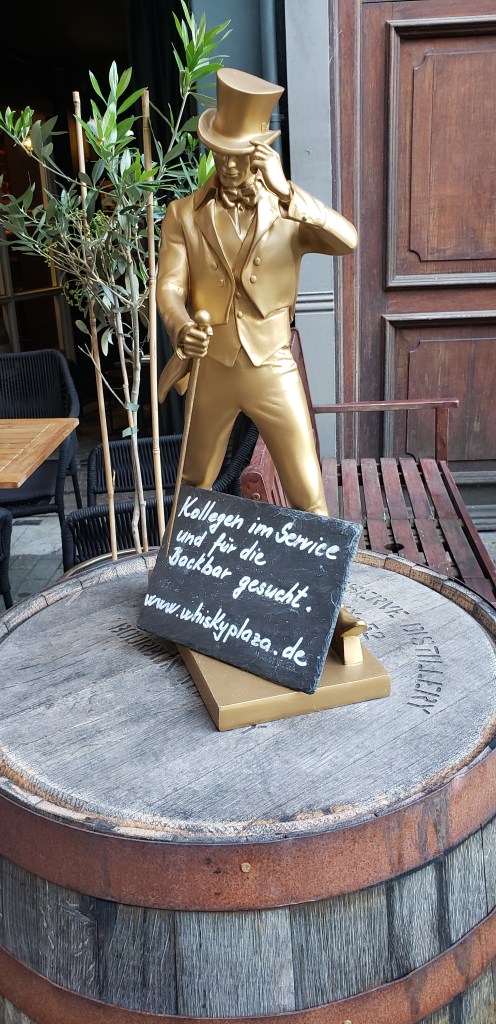 Kollegen im Service
und für die
Backbar gesucht.
www.whiskyplaza.de
DISTILLERY